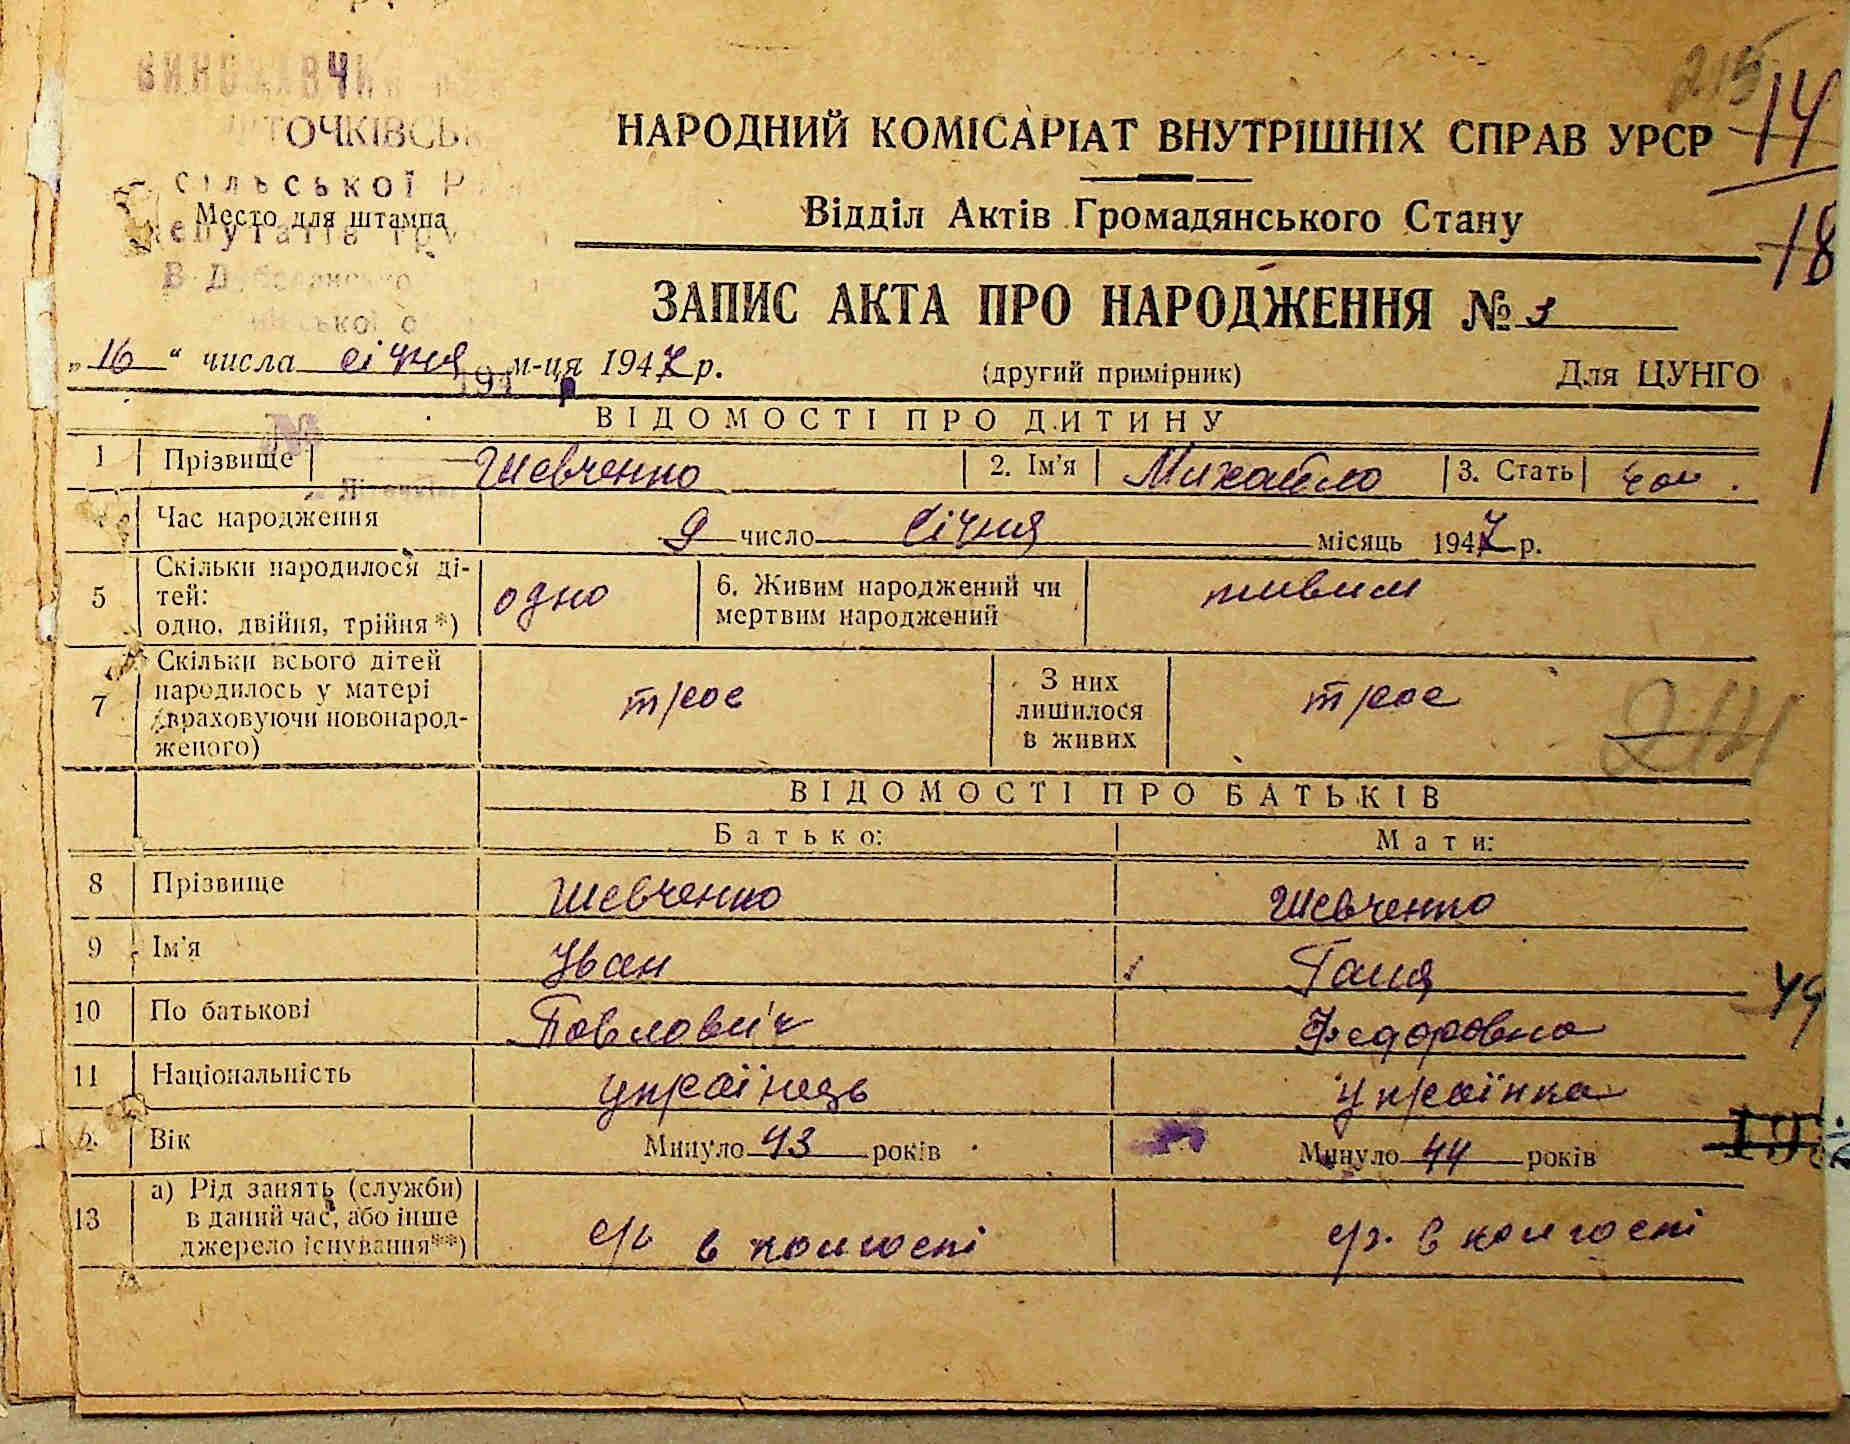 215
14
18
ТОЧКІВСЬК
сільської Р
Место для штампа
НАРОДНИЙ КОМІСАРІАТ ВНУТРІШНІХ СПРАВ УРСР
Відділ Актів Громадянського Стану
ЗАПИС АКТА ПРО НАРОДЖЕННЯ № 3
„16“ числа січня м-ця 1947 р. (другий примірник) Для ЦУНГО
ВІДОМОСТІ ПРО ДИТИНУ
1 Прізвище Шевченко 2. Ім'я Михайло 3. Стать чол.
Час народження 9 число січня місяць 1947 р.
5 Скільки народилося ді-
тей:
одно, двійня, трійня*) одно 6. Живим народжений чи
мертвим народжений живим
7 Скільки всього дітей
народилось у матері
(враховуючи новонарод-
женого) троє З них
лишилося
в живих троє
214
ВІДОМОСТІ ПРО БАТЬКІВ
Батько: Мати:
8 Прізвище Шевченко Шевченко
9 Ім'я Іван Ганя
10 По батькові Павлович Федоровна
49
11 Національність українець українка
Вік Минуло 43 років Минуло 44 років
13 а) Рід занять (служби)
в даний час, або інше
джерело існування**) с/г в колгоспі с/г. в колгоспі